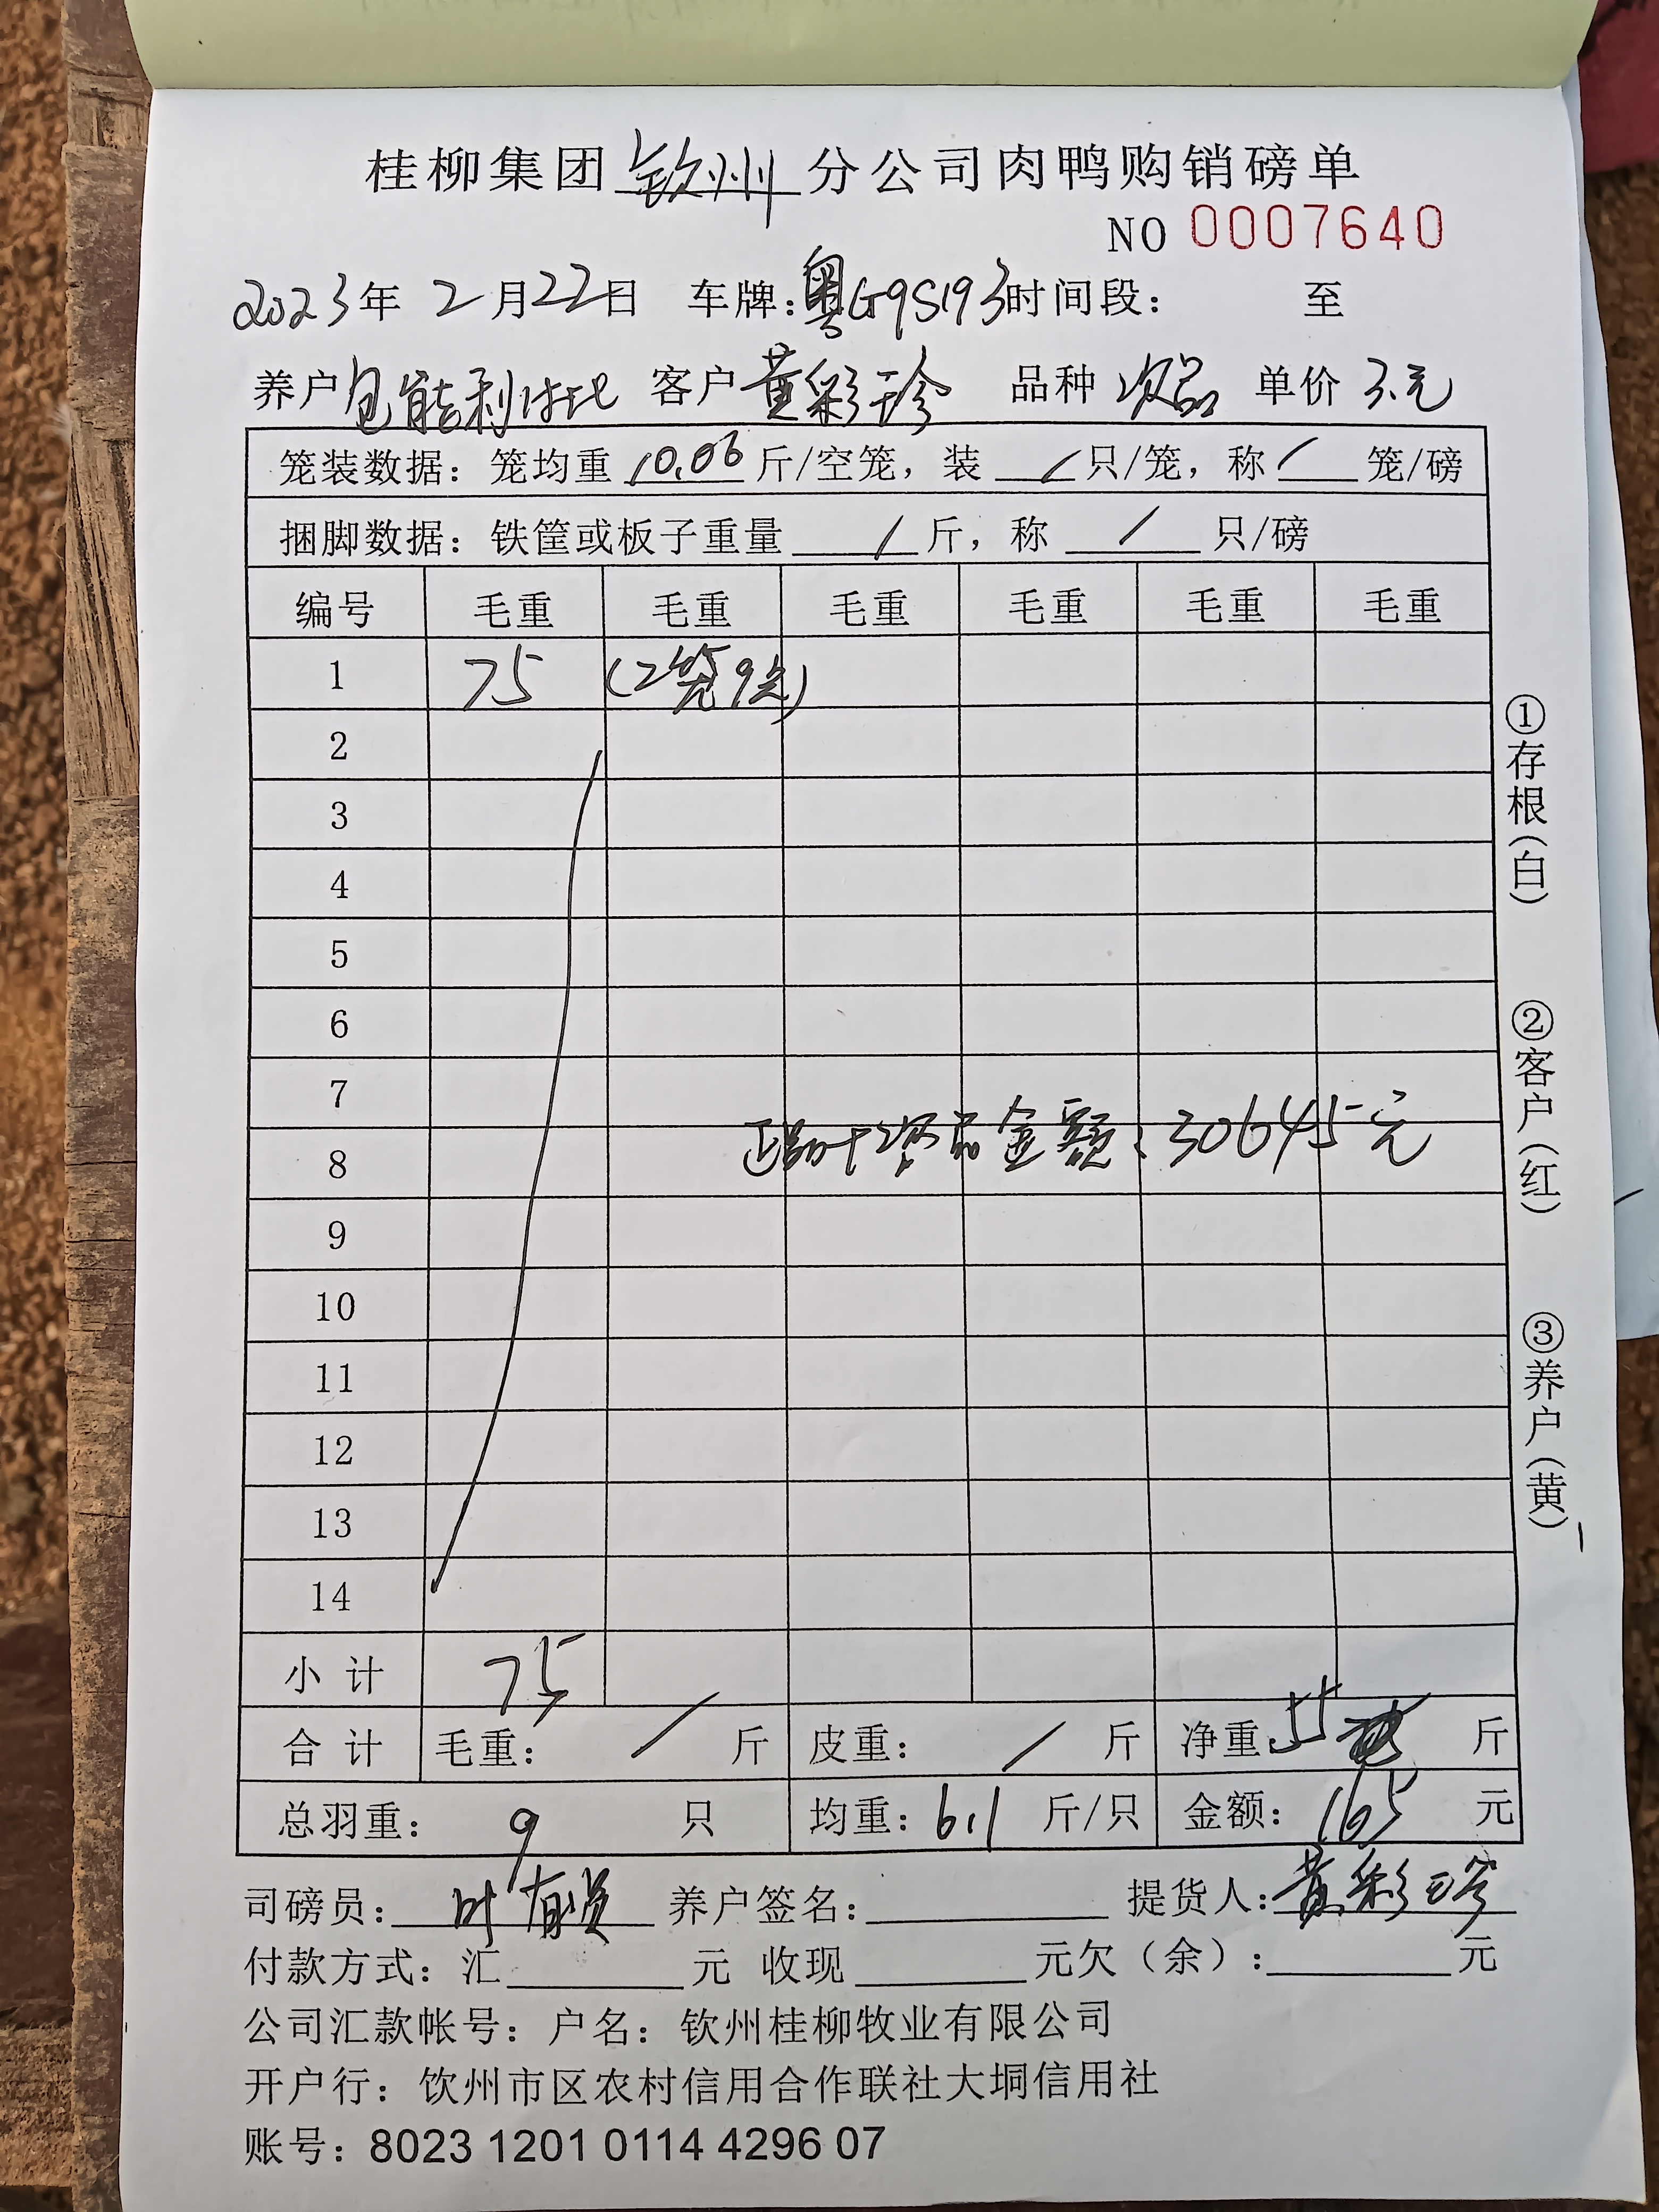 桂柳集团钦州分公司肉鸭购销磅单
NO 0007640
2023年2月22日 车牌:粤G9S193时间段: 至
养户 客户黄彩珍 品种 次品 单价 3元
笼装数据: 笼均重 10.06 斤/空笼, 装 / 只/笼, 称 / 笼/磅
捆脚数据: 铁筐或板子重量 / 斤, 称 / 只/磅
编号 毛重 毛重 毛重 毛重 毛重 毛重
1 75 (2笼9只)
2
3
4
5
6
7
正品+次品金额:30645元
8
9
10
11
12
13
14
小计 75
合计 毛重: / 斤 皮重: / 斤 净重:55 斤
总羽重: 9 只 均重: 6.1 斤/只 金额: 165 元
司磅员: 叶 养户签名: 提货人:黄彩珍
付款方式: 汇 元 收现 元欠(余): 元
公司汇款帐号: 户名: 钦州桂柳牧业有限公司
开户行: 钦州市区农村信用合作联社大垌信用社
账号: 8023 1201 0114 4296 07
①存根(白)
②客户(红)
③养户(黄)